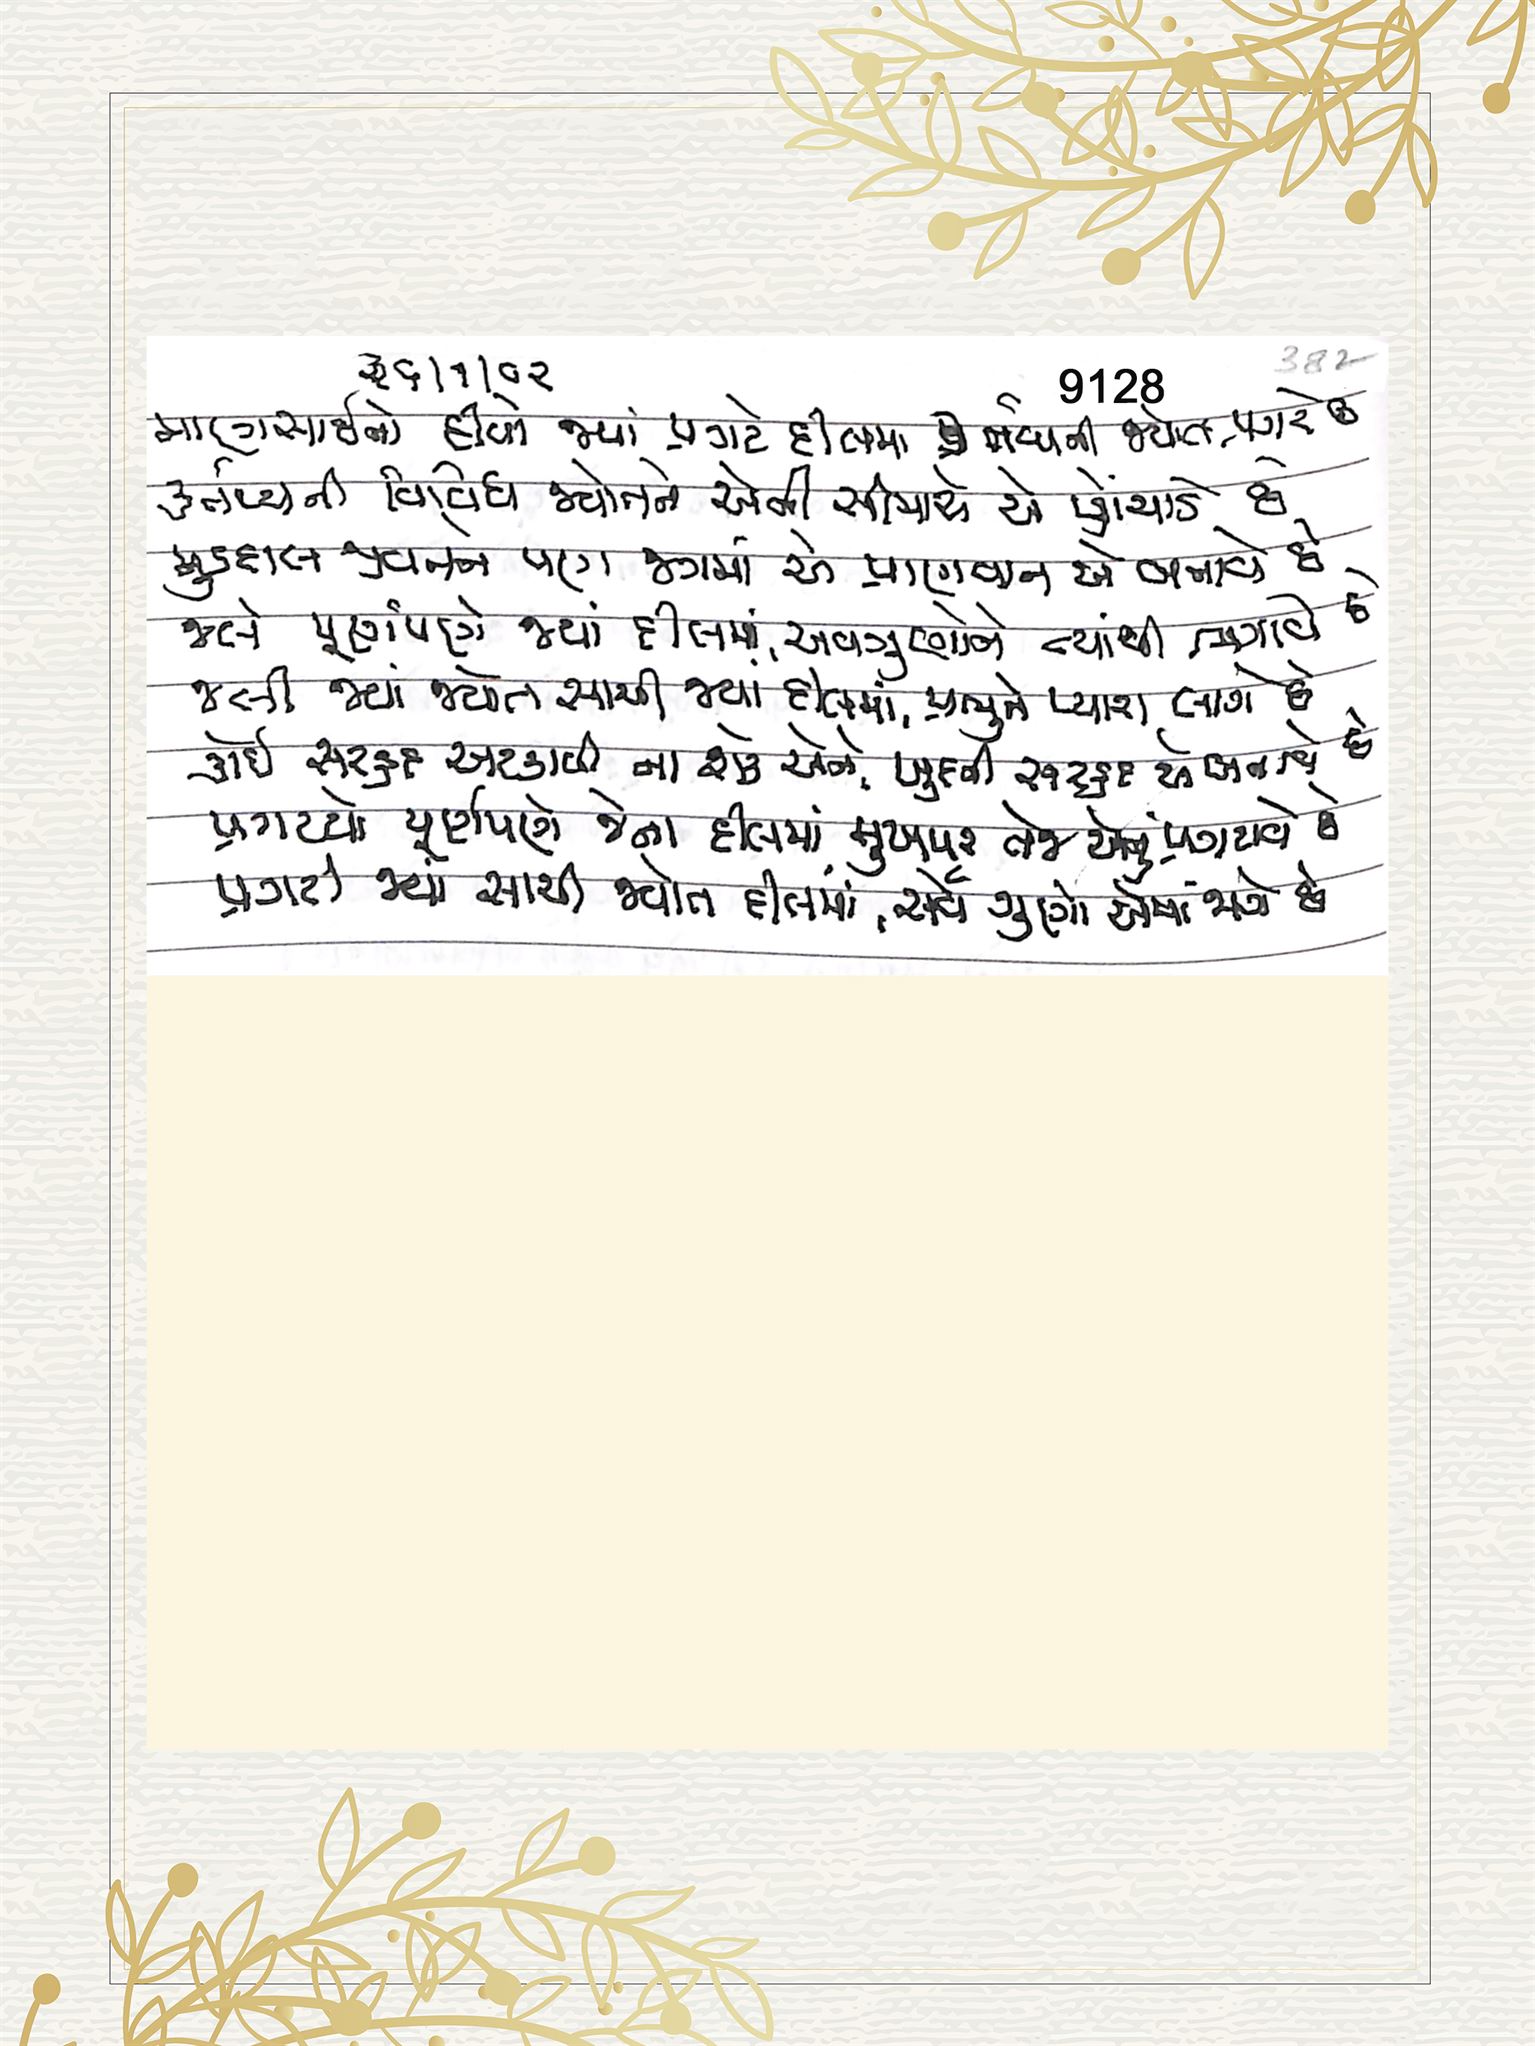 382
૨૬/૧/૦૨
9128
માણસાઈનો દીવો જ્યાં પ્રગટે દીલમાં કર્તવ્યની જ્યોત પ્રગટે છે
કર્તવ્યની વિવિધ જ્યોતને એની સીમાએ એ પ્હોંચાડે છે
મુડદાલ જીવનને પણ જગમાં એ પ્રાણવાન એ બનાવે છે
જલે પૂર્ણપણે જ્યાં દીલમાં, અવગુણોને ત્યાંથી ભગાવે છે
જલી જ્યાં જ્યોત સાચી જ્યાં દીલમાં, પ્રભુને પ્યારા લાગે છે
કોઈ સરહદ અટકાવી ના શકે એને, ખુદની સરહદ એ બનાવે છે
પ્રગટયો પૂર્ણપણે જેના દીલમાં, મુખપર તેજ એનું પ્રગટાવે છે
પ્રગટી જ્યાં સાચી જ્યોત દીલમાં, સર્વે ગુણો એમાં ભળે છે